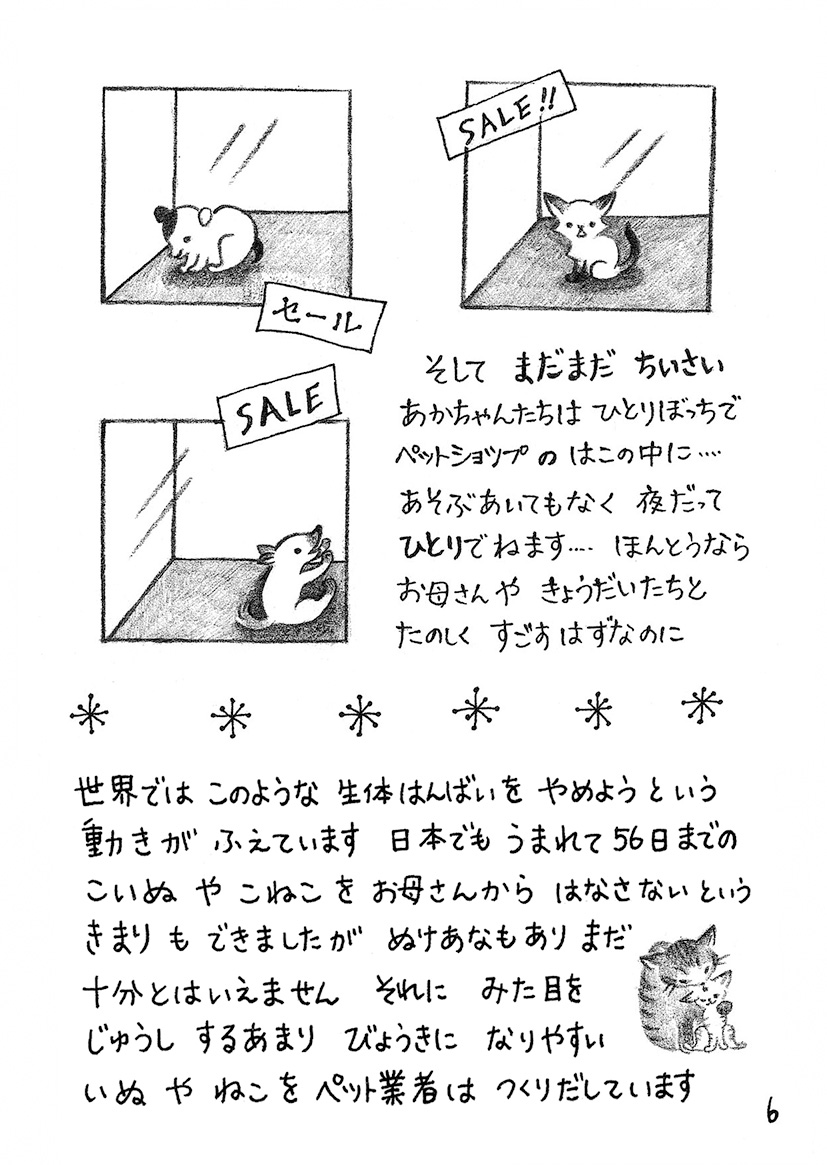 SALE!!
セール
SALE
そして まだまだ ちいさい
あかちゃんたちは ひとりぼっちで
ペットショップ の はこの中に‥‥
あそぶあいてもなく 夜だって
ひとりでねます‥‥ ほんとうなら
お母さんや きょうだいたちと
たのしく すごすはずなのに
世界では このような 生体はんばいを やめようという
動きが ふえています 日本でも うまれて56日までの
こいぬ や こねこ を お母さんから はなさないという
きまり も できましたが ぬけあなもあり まだ
十分とはいえません それに みた目を
じゅうし するあまり びょうきに なりやすい
いぬ や ねこを ペット業者は つくりだしています
6